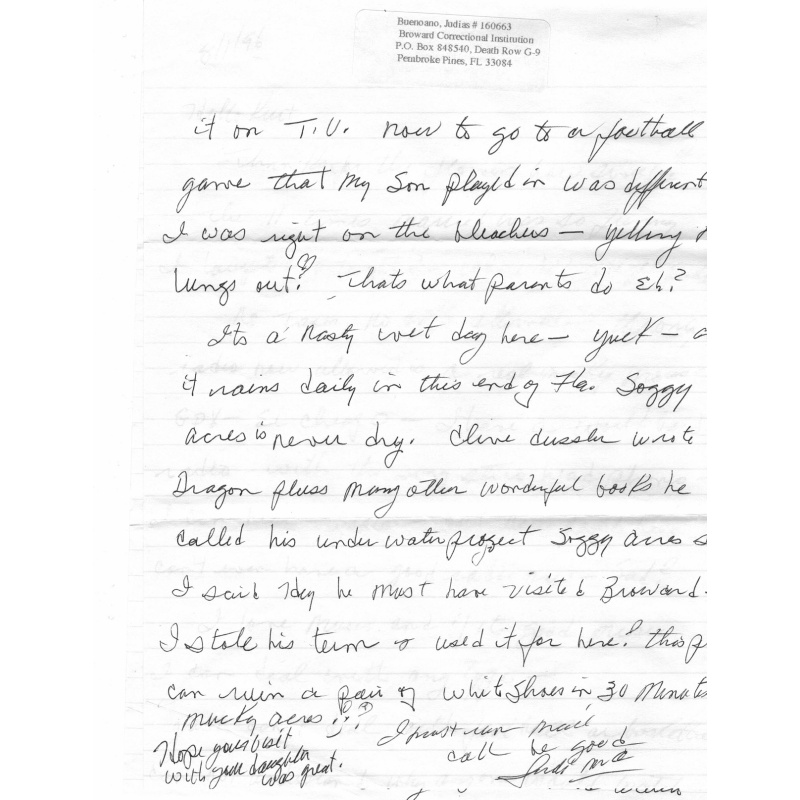 Buenoano, Judias # 160663
Broward Correctional Institution
P.O. Box 848540, Death Row G-9
Pembroke Pines, FL 33084
it on T.V. now to go to a football
game that my Son played in was different
I was right on the bleachers — yelling
lungs out! Thats what parents do Eh?
Its a nasty wet day here — yuck —
it rains daily in this end of Fla. Soggy
acres is never dry. Clive Cussler wrote
Dragon pluss many other wonderful books he
called his under water project Soggy acres
I said Hey he must have visited Broward.
I stole his term & used it for here! this
can ruin a pair of white shoes in 30 minutes
mucky acres
Hope your visit
with your daughter
was great.
I must run mail
call be good
Judi